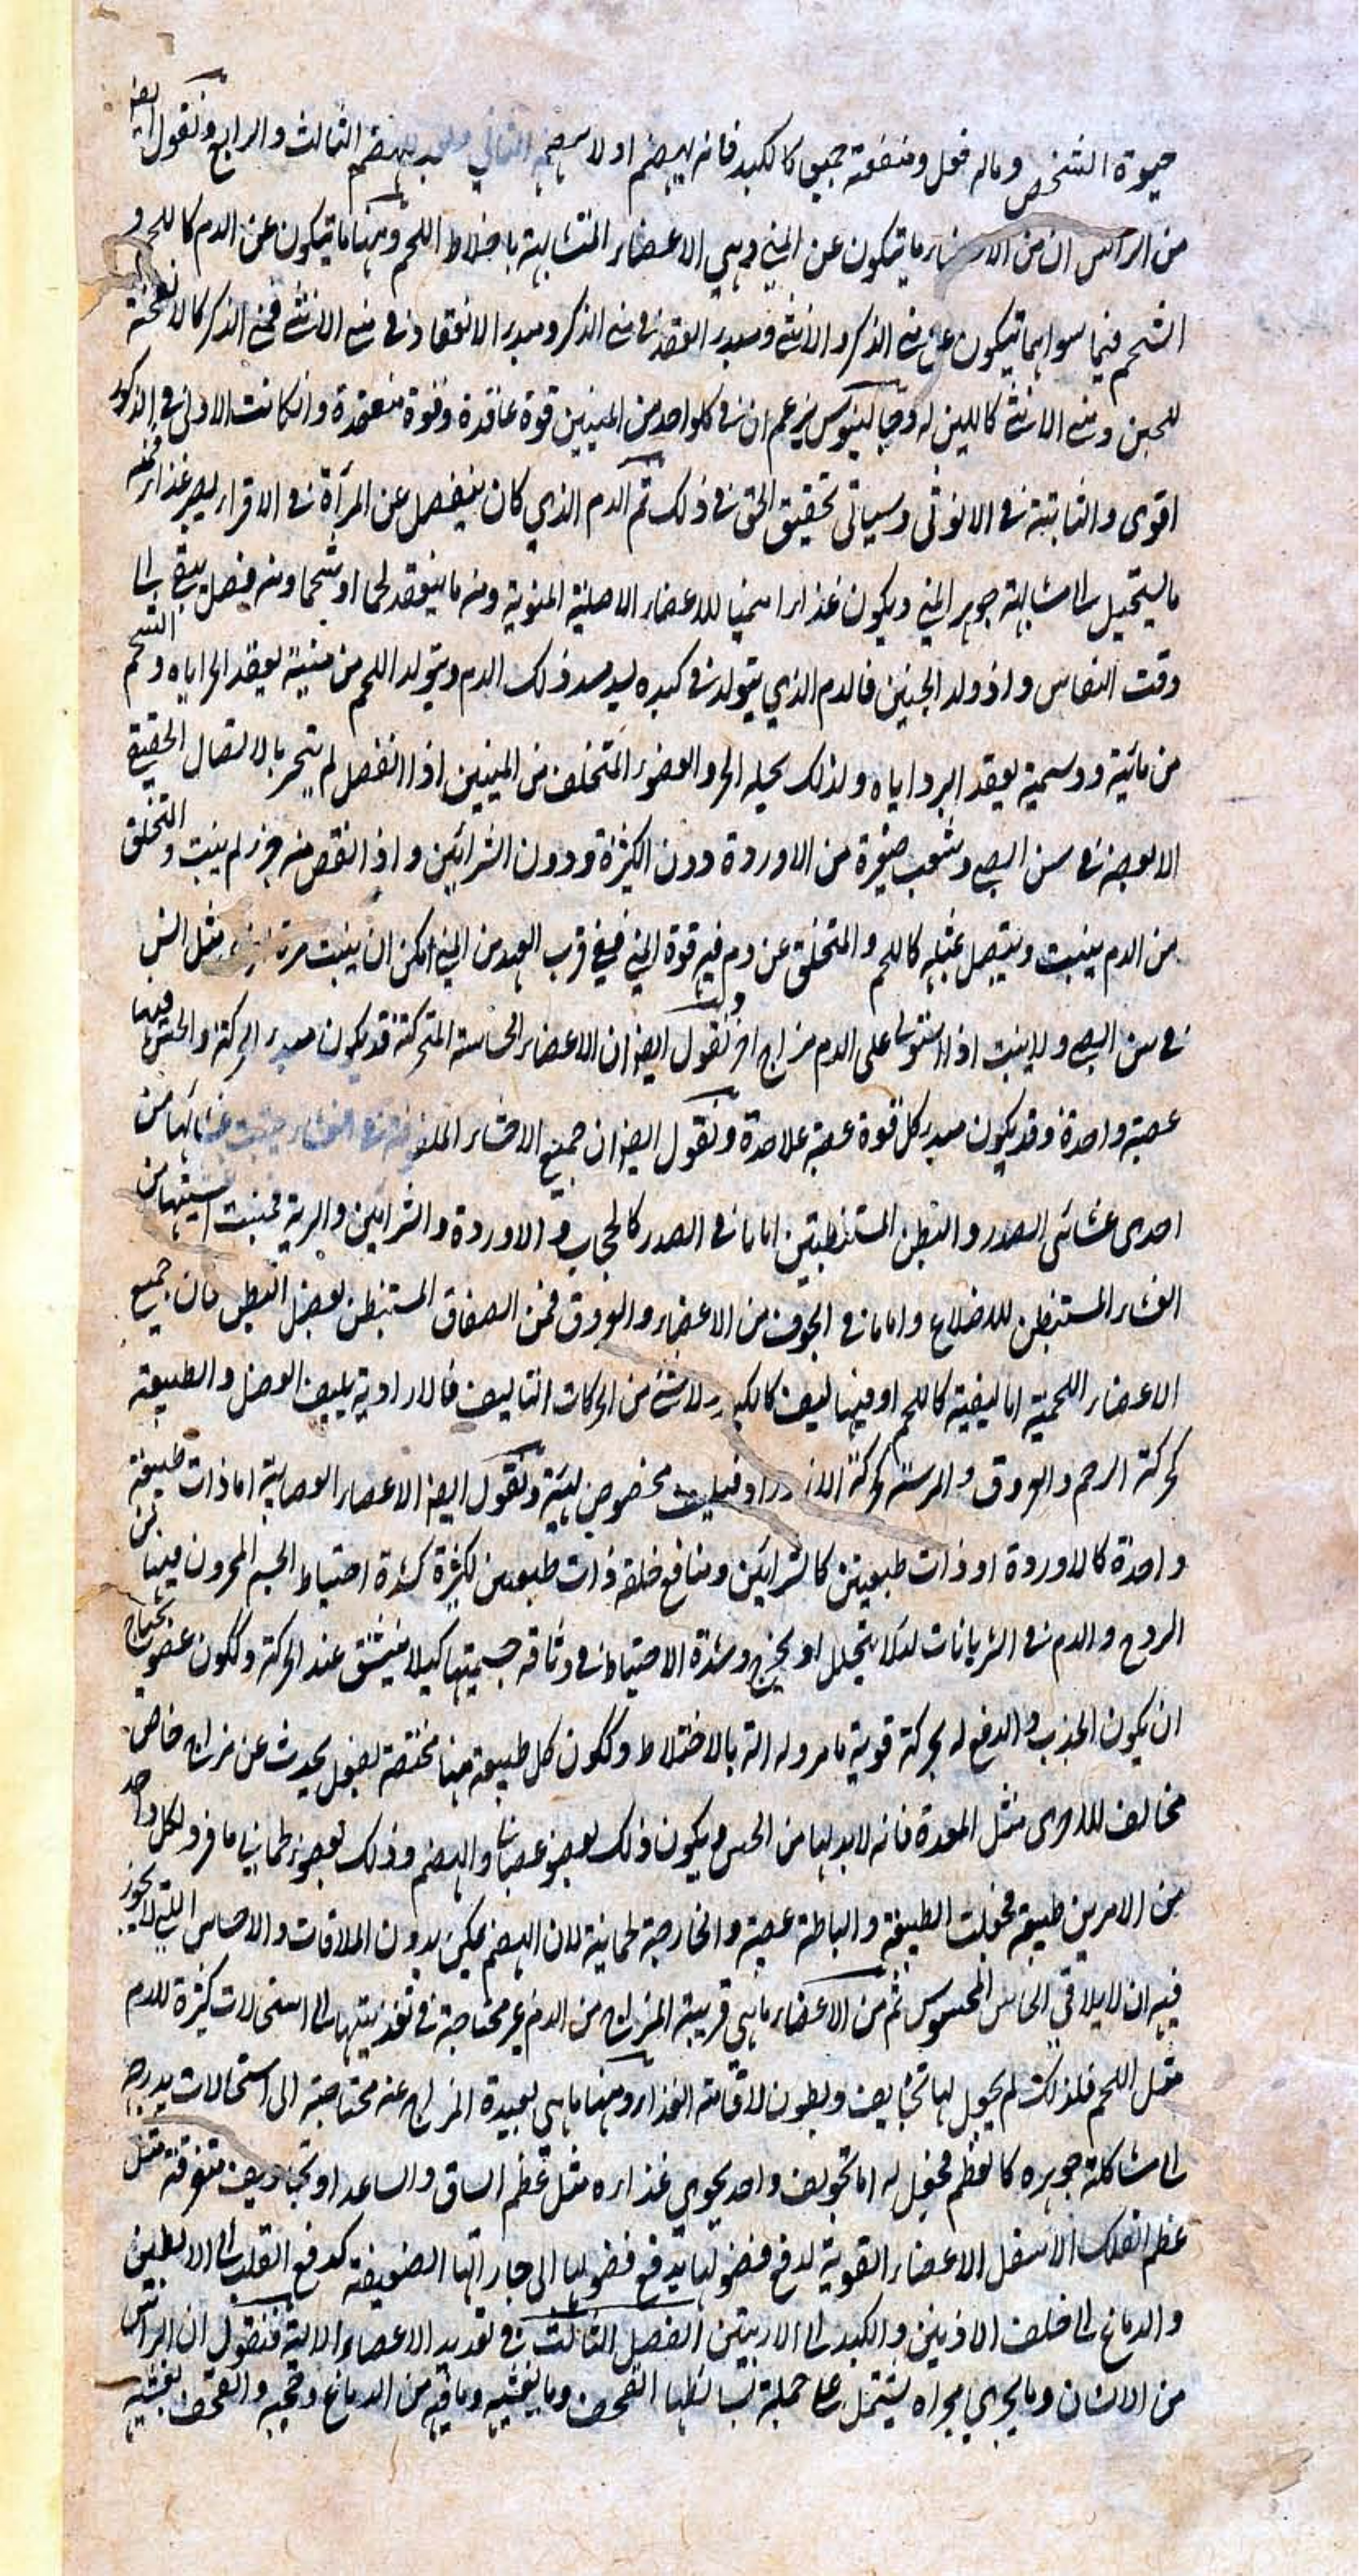 حيوة الشخص وماله فعل ومنفعة جميعا كالكبد فانه يهضم اولا هضمه الثاني ويعد للهضم الثالث والرابع ونقول ايضا
من الراس ان من الاعضاء ما يتكون عن المني وهي الاعضاء المتشابهة ما خلا اللحم ومنها ما يتكون عن الدم كاللحم و
الشحم فما سواهما يتكون عن مني الذكر والانثى ومبدء العقد في مني الذكر ومبدء الانعقاد في مني الانثى فمني الذكر كالانفحة
للجبن ومني الانثى كاللبن له وجالينوس يزعم ان في كلواحد من المنيين قوة عاقدة وقوة منعقدة وانكانت الاولى في الذكور
اقوى والثانية في الانوثى وسياتى تحقيق الحق في ذلك ثم الدم الذي كان ينفصل عن المرأة في الاقراء يصير غذاء فمنه
ما يستحيل الى مشابهة جوهر المني ويكون غذاء ا منميا للاعضاء الاصلية المنوية ومنه ما ينعقد لحما او شحما ومنه فضل يبقى الى
وقت النفاس واذ ولد الجنين فالدم الذي يتولد في كبده يسد مسد ذلك الدم ويتولد اللحم من متينه يعقد الحر اياه والشحم
من مائية ودسمية يعقد البرد اياه ولذلك يحيله الحر والعضو المتخلف من المنيين اذا انفصل لم ينجبر بالاتصال الحقيقي
الا بعضه في سن الصبي وشعب صغيرة من الاوردة دون الكثيرة ودون الشرائين واذ انقص منه جزء لم ينبت والمتخلق
من الدم ينبت ويتصل بمثله كاللحم والمتخلق عن دم فيه قوة المني ففي قرب العهد من المني امكن ان ينبت مرة مثل السن
في سن الصبي ولا ينبت اذا استولى على الدم مزاج اخر ونقول ايضا ان الاعضاء الحاسة المتحركة قد يكون مبدء الحركة والحس فيها
عصبة واحدة وقد يكون مبدء كل قوة عصبة علاحدة ونقول ايضا ان جميع الاحشاء الملفوفة في الغشاء منبت غشائها من
احدى غشائى الصدر والبطن المستنبطين اما ما في الصدر كالحجاب والاوردة والشرائين والرية فمنبت اغشيتها من
الغشاء المستبطن للاضلاع واما ما في الجوف من الاعضاء والعروق فمن الصفاق المستبطن لعضل البطن فان جميع
الاعضاء اللحمية اما ليفية كاللحم او فيها ليف كالكبد ولا شئ من الحركات الا بالليف فالارادية بليف العضل والطبيعة
كحركة الرحم والعروق والمركبة كحركة الازدراد فبليف مخصوص بهيئة ونقول ايضا الاعضاء العصابية اما ذات طبيعة
واحدة كالاوردة او ذات طبيعتين كالشرائين ومنافع خلقة ذات طبقتين كثيرة كشدة احتياط الجسم المخزون فيها من
الروح والدم في الشريانات لئلا يتحلل او يخرج وشدة الاحتياط في وثاقة جسميتها كيلا ينشق عند الحركة وككون عضو يحتاج
ان يكون الجذب والدفع له بحركة قوية مامر وله الة بالاختلاط وككون كل طبيعة منها مختصة بفعل يحدث عن مزاج خاص
مخالف للاخرى مثل المعدة فانه لا بد لها من الحس ويكون ذلك بعضو عصبانى والهضم وذلك بعضو لحماني فافرد لكل واحد
من الامرين طبيعة فجعلت الطبيعة والباطنة عصبية والخارجة لحمانية لان الهضم يمكن بدون الملاقات والاحساس اللتي لا يجوز
فيه ان لا يلاقي الحاس المحسوس ثم من الاعضاء ما هي قريبة المزاج من الدم غير محتاجة في تغذيتها الى استحالات كثيرة للدم
مثل اللحم فلذلك لم يجعل لها تجايف وبطون لاقامة الغذاء ومنها ما هي بعيدة المزاج عنه محتاجة الى استحالات بدرجة
الى مشاكلة جوهره كالعظم فجعل له اما تجويف واحد يحوي غذاءه مثل عظم الساق والساعد او تجاويف متفرقة مثل
عظم الفك الاسفل الاعضاء القوية لدفع فضولها يدفع فضولها الى جاراتها الضعيفة كدفع القلب الى الابطين
والدماغ الى خلف الاذنين والكبد الى الاربيتين الفصل الثالث في تعديد الاعضاء الالية فنقول ان الراس
من الانسان وما يجري مجراه يشتمل على جملة بسائطها القحف وما يغشيه وما فيه من الدماغ وحجبه والقحف يغشيه